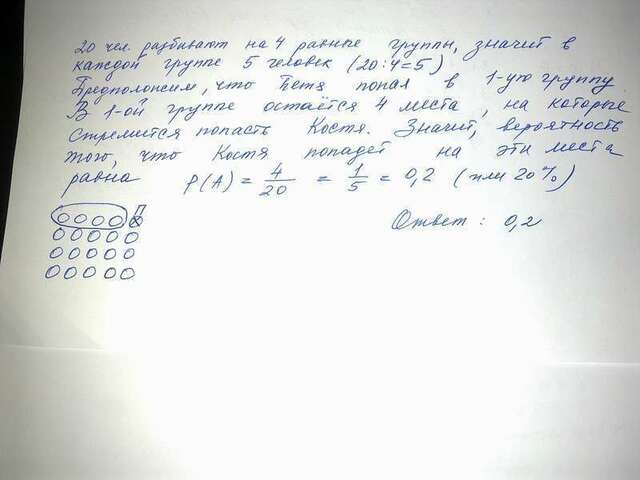 20 чел. разбивают на 4 равные группы, значит в
каждой группе 5 человек (20:4=5)
Предположим, что Петя попал в 1-ую группу
В 1-ой группе остаётся 4 места, на которые
стремится попасть Костя. Значит, вероятность
того, что Костя попадёт на эти места
равна P(A) = 4/20 = 1/5 = 0,2 (или 20%)
П
Ответ: 0,2